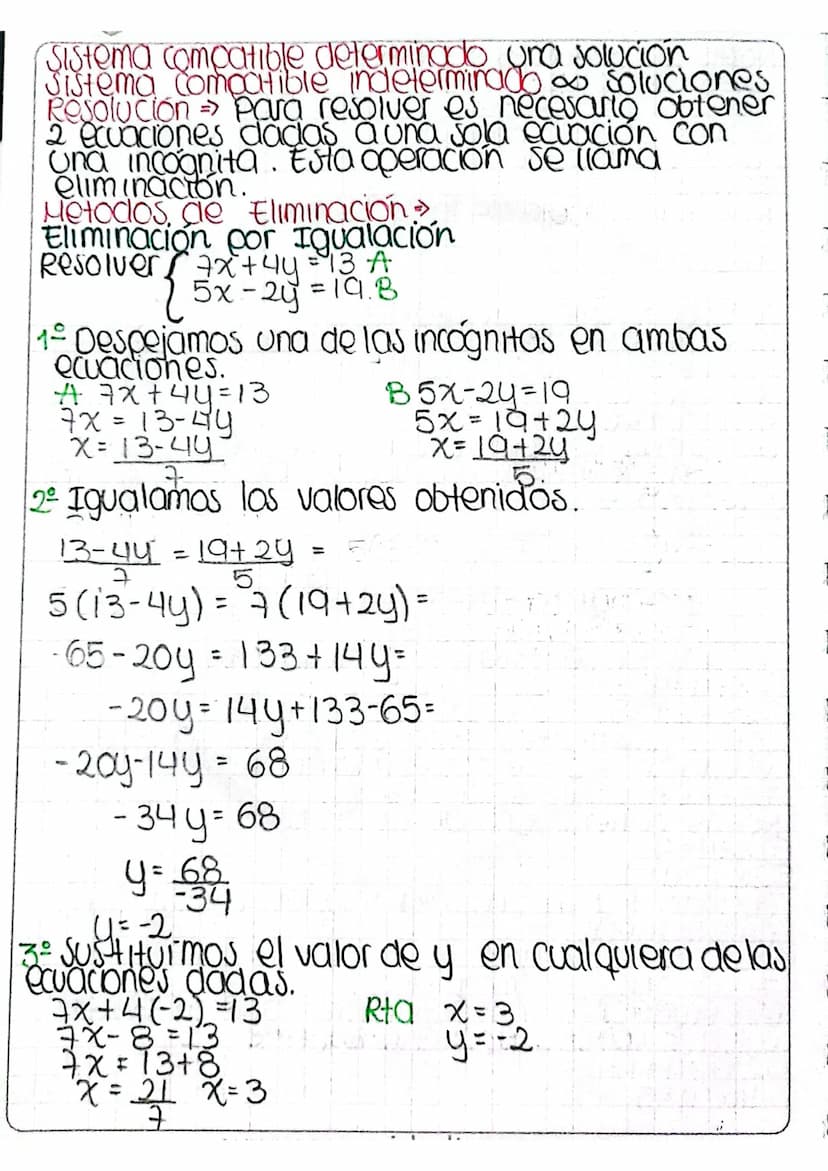 Sistema compatible determinado una solución
Sistema compatible indeterminado ∞ soluciones
Resolución ⇒ Para resolver es necesario obtener
2 ecuaciones dadas a una sola ecuación con
una incógnita. Esta operación se llama
eliminación.
Metodos de Eliminación ⇒
Eliminación por Igualación
Resolver { 7x + 4y = 13 A
5x - 2y = 19. B
1º Despejamos una de las incógnitos en ambas
ecuaciones.
A 7x + 4y = 13 B 5x - 2y = 19
7x = 13 - 4y 5x = 19 + 2y
x = 13 - 4y x = 19 + 2y
7 5
2º Igualamos los valores obtenidos.
13 - 4y = 19 + 2y =
7 5
5(13 - 4y) = 7(19 + 2y) =
65 - 20y = 133 + 14y =
- 20y = 14y + 133 - 65 =
- 20y - 14y = 68
- 34y = 68
y = 68
-34
y = -2
3º Sustituimos el valor de y en cualquiera de las
ecuaciones dadas.
7x + 4(-2) = 13 Rta x = 3
7x - 8 = 13 y = -2
7x = 13 + 8
x = 21 x = 3
7